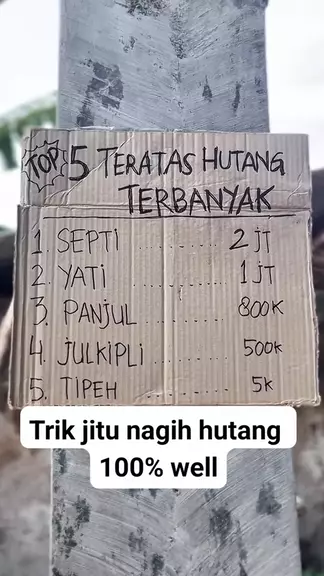 TOP 5 TERATAS HUTANG
TERBANYAK
1. SEPTI ........... 2 JT
2. YATI ............ 1 JT
3. PANJUL ........... 800K
4. JULKIPLI ........... 500K
5. TIPEH ........... 5K
Trik jitu nagih hutang
100% well